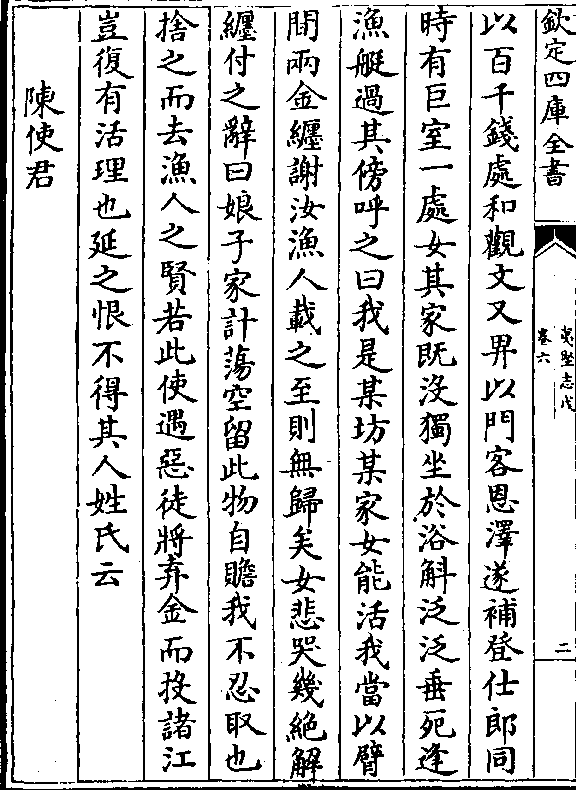 欽定四庫全書
夷堅志戊
卷六
二
以百千錢處和觀文又畀以門客恩澤遂補登仕郎同
時有巨室一處女其家既沒獨坐於浴斛泛泛垂死逢
漁艇過其傍呼之曰我是某坊某家女能活我當以臂
間兩金纒謝汝漁人載之至則無歸矣女悲哭幾絕解
纒付之辭曰娘子家計蕩空留此物自贍我不忍取也
捨之而去漁人之賢若此使遇惡徒將弃金而投諸江
豈復有活理也延之恨不得其人姓氏云
陳使君